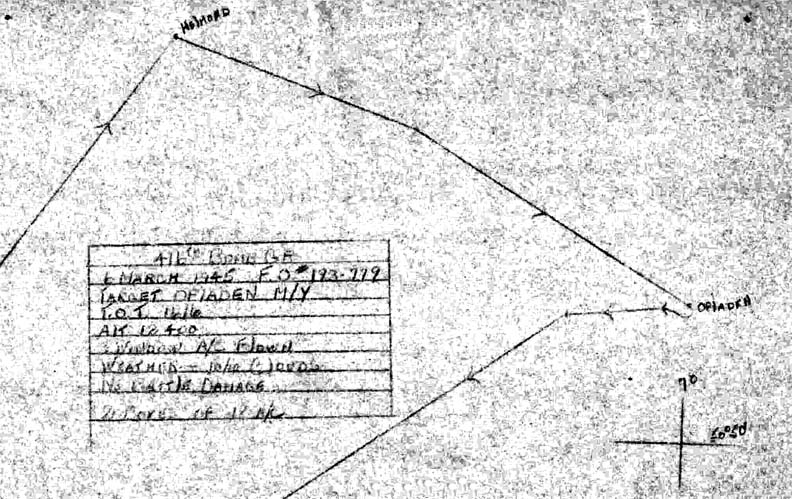 HELMOND
416TH BOMB GP
6 MARCH 1945 F.O.# 193-779
TARGET OPLADEN M/Y
T.O.T. 1616
ALT 12,400
WINDOW A/C FLOWN
WEATHER — 10/10 CLOUDS
NO BATTLE DAMAGE
OF A/C
OPLADEN
7°
50°50'